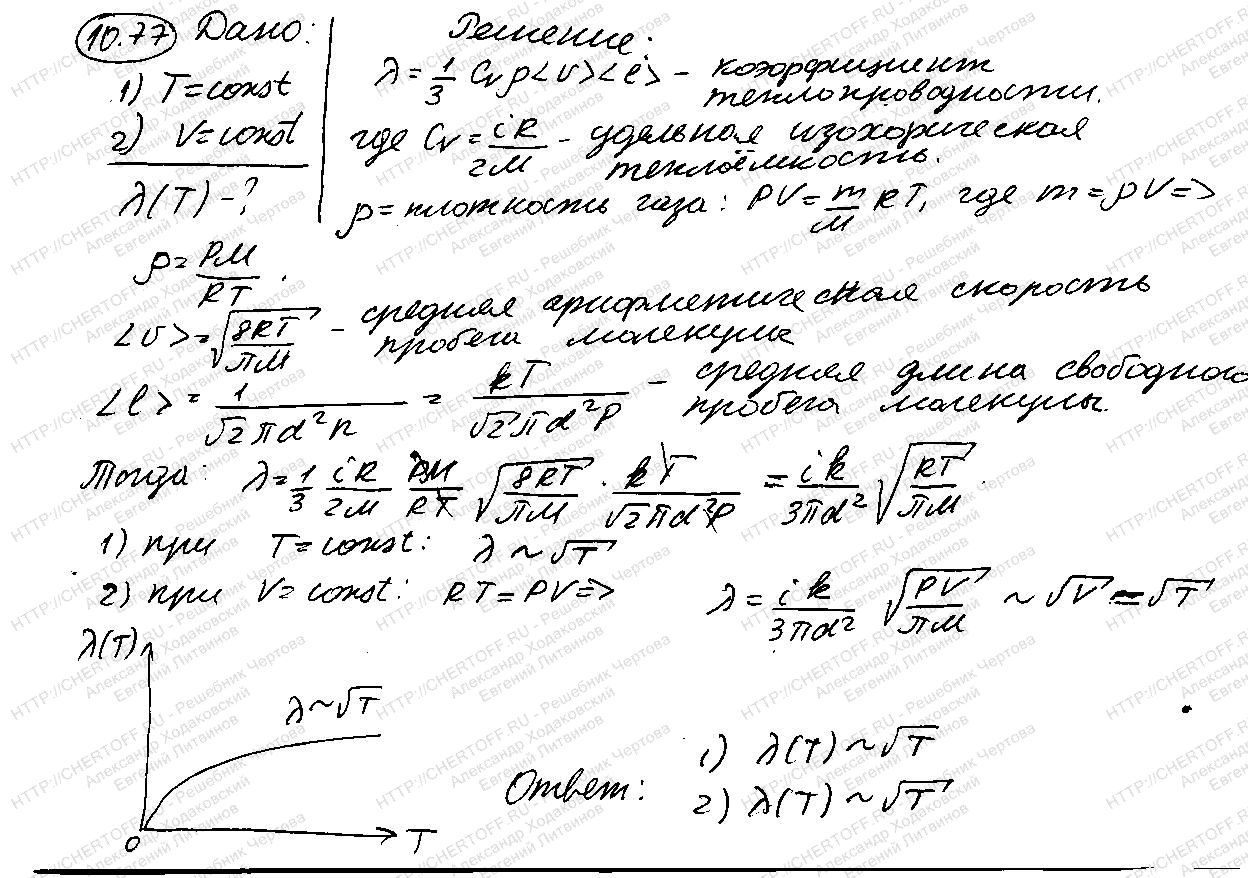 10.77 Дано: Решение:
1) T=const λ = 1/3 Cv ρ <υ> <l> - коэффициент теплопроводности.
2) V=const где Cv = iR/2M - удельная изохорическая теплоёмкость.
λ(T) - ? ρ = плотность газа: PV = m/M RT, где m = ρV =>
ρ = PM/RT.
<υ> = √(8RT/πM) - средняя арифметическая скорость пробега молекулы
<l> = 1/(√2 πd²n) = kT/(√2 πd²P) - средняя длина свободного пробега молекулы.
Тогда: λ = 1/3 iR/2M PM/RT √(8RT/πM) · kT/(√2 πd²P) = ik/3πd² √(RT/πM).
1) при T=const: λ ~ √T
2) при V=const: RT = PV => λ = ik/3πd² √(PV/πM) ~ √V = √T
λ(T)
λ~√T
0 T
Ответ: 1) λ(T) ~ √T
2) λ(T) ~ √T
HTTP://CHERTOFF.RU - Решебник Чертова
Александр Ходаковский
Евгений Литвинов